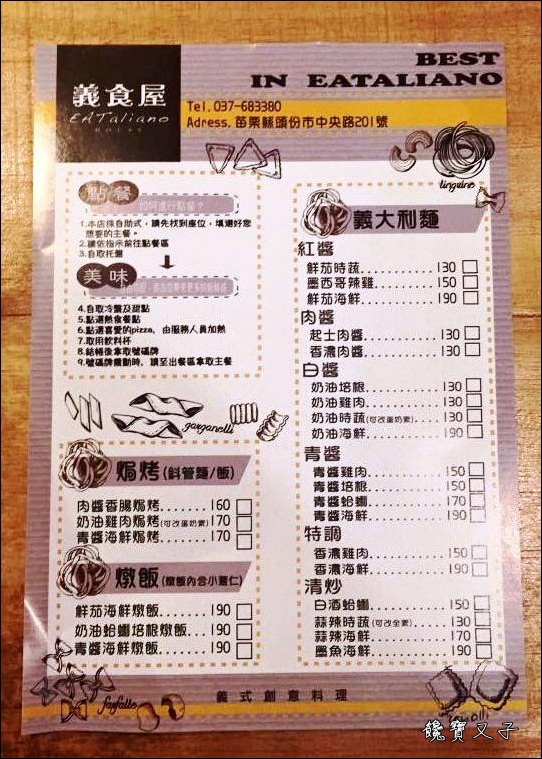 義食屋
EATaliano
HOUSE
BEST
IN EATALIANO
Tel. 037-683380
Adress. 苗栗縣頭份市中央路201號
linguine
點餐
如何進行點餐？
1.本店採自助式，請先找到座位，填選好您
想要的主餐。
2.請依指示前往點餐區
3.自取托盤
美味
4.自取冷盤及甜點
5.點選熱食餐點
6.點選喜愛的pizza，由服務人員加熱
7.取用飲料杯
8.結帳後拿取號碼牌
9.號碼牌震動時，請至出餐區拿取主餐
garganelli
焗烤(斜管麵/飯)
肉醬香腸焗烤.......160
奶油雞肉焗烤(可改蛋奶素)170
青醬海鮮焗烤.......170
燉飯(燉飯內含小薏仁)
鮮茄海鮮燉飯.......190
奶油蛤蠣培根燉飯...190
青醬海鮮燉飯.......190
farfalle
義大利麵
紅醬
鮮茄時蔬..........130
墨西哥辣雞........150
鮮茄海鮮..........190
肉醬
起士肉醬..........130
香濃肉醬..........130
白醬
奶油培根..........130
奶油雞肉..........130
奶油時蔬(可改蛋奶素)....130
奶油海鮮..........190
青醬
青醬雞肉..........150
青醬培根..........150
青醬蛤蠣..........170
青醬海鮮..........190
特調
香濃雞肉..........150
香濃海鮮..........190
清炒
白酒蛤蠣..........150
蒜辣時蔬(可改全素)....130
蒜辣海鮮..........170
墨魚海鮮..........190
義式創意料理
饞寶又子